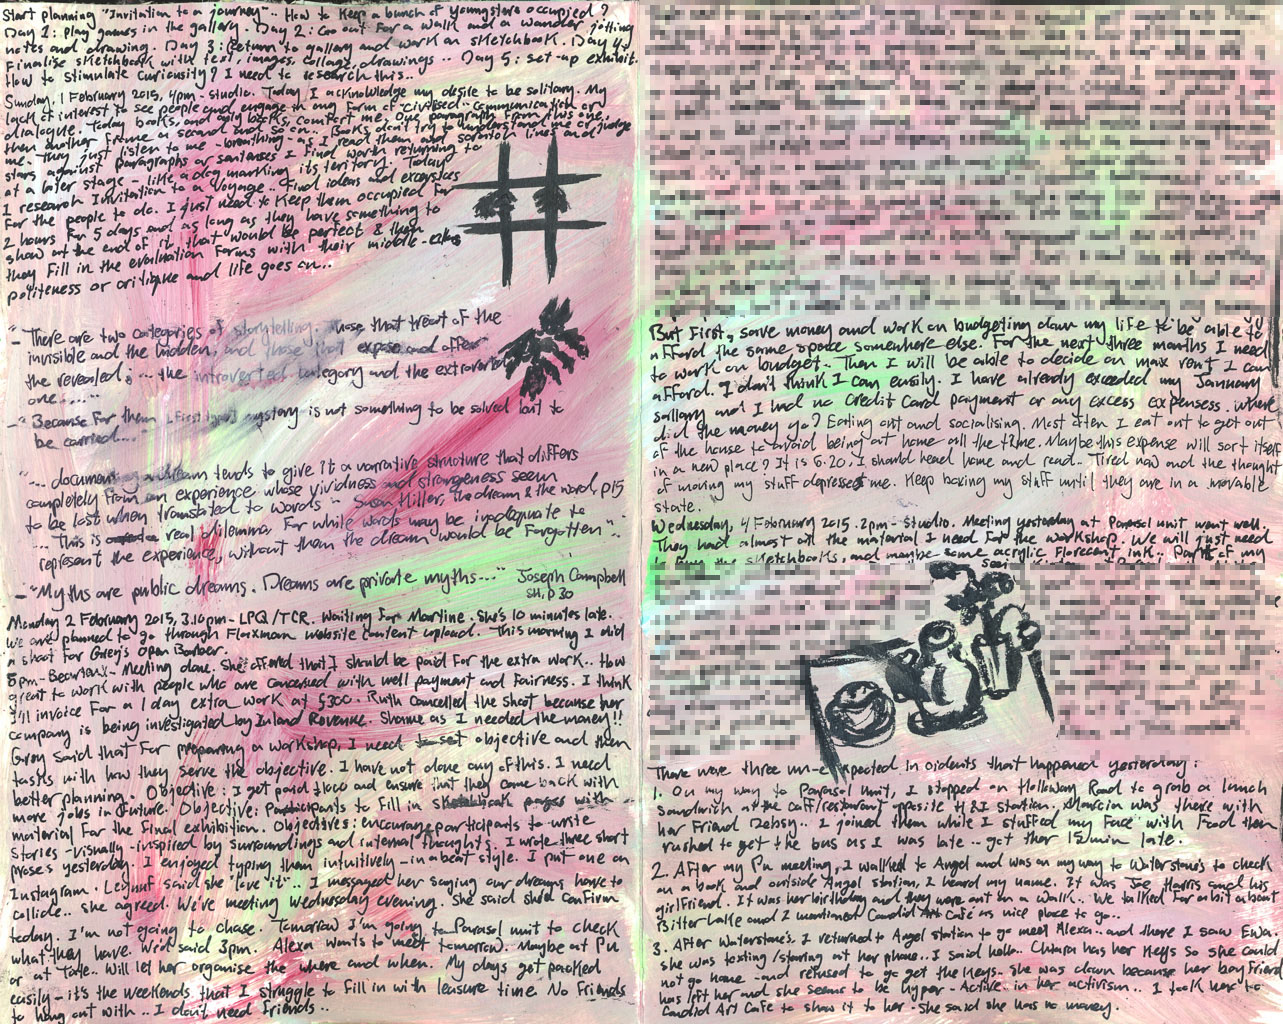 Start planning "Invitation to a journey".. How to keep a bunch of youngsters occupied?
Day 1: play games in the gallery. Day 2: Go out for a walk and a wander jotting
notes and drawing. Day 3: Return to gallery and work on sketchbook. Day 4:
Finalise sketchbook with text, images, collage, drawings .. Day 5: set-up exhibit.
How to stimulate curiousity? I need to research this..
Sunday, 1 February 2015, 4pm - studio. Today I acknowledge my desire to be solitary. My
lack of interest to see people and engage in any form of "civilised" communication or
dialogue. Today books, and only books, comfort me. One paragraph from this one,
then another from a second and so on.. Books don't try to understand me or judge
me. They just listen to me - breathing - as I read them and scratch lines and
stars against paragraphs or sentenses I find worth returning to
at a later stage - like a dog marking its teritory. Today
I research Invitation to a Voyage.. Find ideas and excersises
for the people to do. I just need to keep them occupied for
2 hours for 5 days and as long as they have something to
show at the end of it that would be perfect & then
they fill in the evaluation forms with their middle-class
politeness or critique and life goes on..
- "There are two categories of storytelling. Those that treat of the
invisible and the hidden, and those that expose and offer
the revealed; ... the introverted category and the extroverted
one......"
- "Because for them [first type] mystery is not something to be solved but to
be carried..."
"... documenting a dream tends to give it a narrative structure that differs
completely from an experience whose vividness and strangeness seem
to be lost when translated to words" Susan Hiller, the dream & the word, p15
... This is a real dilemma for while words may be inadequate to
represent the experience, without them the dream would be forgotten"..
- "Myths are public dreams. Dreams are private myths..." Joseph Campbell
SH, p 30
Monday 2 February 2015, 3.10pm - LPQ/TCR. Waiting for Martine. She's 10 minutes late.
We are planned to go through Flaxman website content upload. This morning I did
a shoot for Greg's Open Barber.
5pm - Meeting done. She offered that I should be paid for the extra work.. How
great to work with people who are concerned with well payment and fairness. I think
I'll invoice for a 1 day extra work at £300. Ruth cancelled the shoot because her
company is being investigated by Inland Revenue. Shame as I needed the money!!
Greg said that for preparing a workshop, I need to set objective and then
tasks with how they serve the objective. I have not done any of this. I need
better planning. Objective: I get paid £1000 and ensure that they come back with
more jobs in future. Objective: Participants to fill in sketchbook pages with
material for the final exhibition. Objectives: encourage participants to write
stories - visually - inspired by surroundings and internal thoughts. I wrote three short
prose's yesterday. I enjoyed typing them intuitively - in a beat style. I put one on
Instagram. said she "love it".. I messaged her saying our dreams have to
collide.. she agreed. We're meeting Wednesday evening. She said she'd confirm
today. I'm not going to chase. Tomorrow I'm going to Parasol unit to check
what they have. We'd said 3pm. Alexa wants to meet tomorrow. Maybe at PU
or at Tate.. Will let her organise the where and when. My days get packed
easily - it's the weekends that I struggle to fill in with leasure time. No friends
to hang out with.. I don't need friends..
But first, save money and work on budgeting down my life to be able to
afford the same space somewhere else. For the next three months I need
to work on budget.. Then I will be able to decide on max rent I can
afford. I don't think I can easily. I have already exceeded my January
sallary and I had no Credit Card payment or any excess expensess. Where
did the money go? Eating out and socialising. Most often I eat out to get out
of the house to avoid being at home all the time. Maybe this expense will sort itself
in a new place? It is 6.20, I should head home and read.. Tired now and the thought
of moving my stuff depresses me. Keep boxing my stuff until they are in a movable
state.
Wednesday, 4 February 2015. 2pm - Studio. Meeting yesterday at Parasol unit went well.
They had almost all the material I need for the workshop. We will just need
to buy the sketchbooks, and maybe some acrylic florecent ink.. Part of my
There were three un-expected incidents that happened yesterday:
1. On my way to Parasol unit, I stopped on Holloway Road to grab a lunch
sandwich at the caff/restaurant opposite H&I station. Marcia was there with
her friend Debsy.. I joined them while I stuffed my face with food then
rushed to get the bus as I was late .. got ther 15min late.
2. After my PU meeting, I walked to Angel and was on my way to Waterstone's to check
on a book and outside Angel station, I heard my name. It was Joe Harris and his
girlfriend. It was her birthday and they were out on a walk. We talked for a bit about
Bitter Lake and I mentioned Candid Art Café as nice place to go..
3. After Waterstone's, I returned to Angel station to go meet Alexa.. and there I saw Ewa.
She was texting/staring at her phone.. I said hello.. Chiara has her keys so she could
not go home - and refused to go get the keys.. she was down because her boyfriend
has left her and she seems to be hyper-Active in her activism.. I took her to
Candid Art Café to show it to her - she said she has no money.